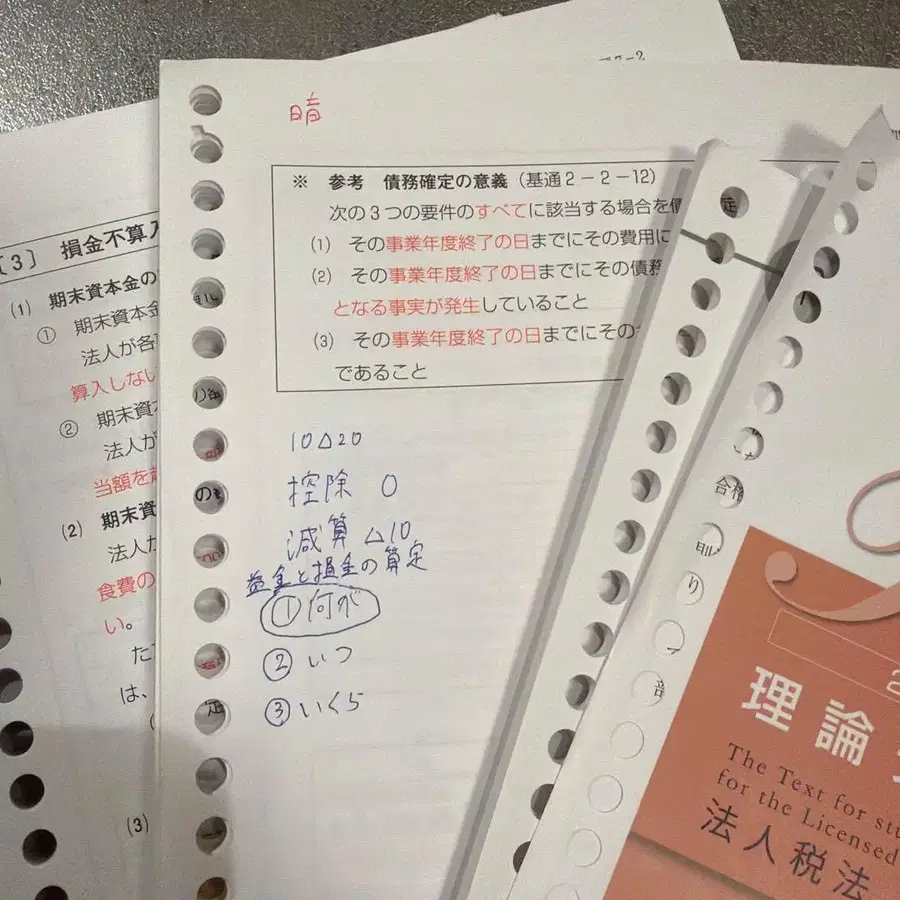 暗
※ 参考 債務確定の意義(基通2-2-12)
次の3つの要件のすべてに該当する場合を債
(1) その事業年度終了の日までにその費用に
(2) その事業年度終了の日までにその債務
となる事実が発生していること
(3) その事業年度終了の日までにその
であること
10△20
控除 0
減算 △10
益金と損金の算定
①何が
②いつ
③いくら
〔3〕 損金不算入
(1) 期末資本金の
① 期末資本金
法人が各
算入しない
② 期末資本
法人が
当額を
(2) 期末資
法人が
食費の
い。
た
は、
(3)
定
合格
り
部
理論
The Text for stu
for the Licensed
法人税法